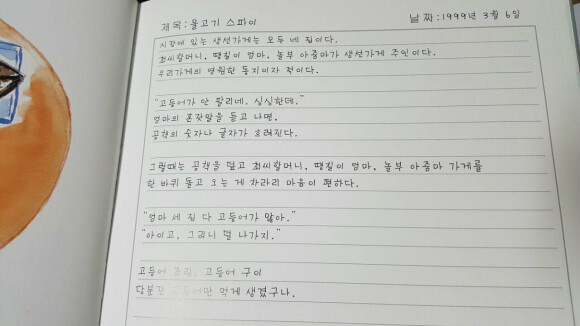 제목:물고기 스파이
날짜:1999년 3월 6일
시장에 있는 생선가게는 모두 네 집이다.
최씨할머니, 땡칠이 엄마, 놀부 아줌마가 생선가게 주인이다.
우리가게의 영원한 동지이자 적이다.
"고등어가 안 팔리네. 싱싱한데."
엄마의 혼잣말을 듣고 나면,
공책의 숫자나 글자가 흐려진다.
그럴때는 공책을 덮고 최씨할머니, 땡칠이 엄마, 놀부 아줌마 가게를
한 바퀴 돌고 오는 게 차라리 마음이 편하다.
"엄마 세 집 다 고등어가 많아."
"아이고, 그러니 덜 나가지."
고등어 조림, 고등어 구이
당분간 고등어만 먹게 생겼구나.